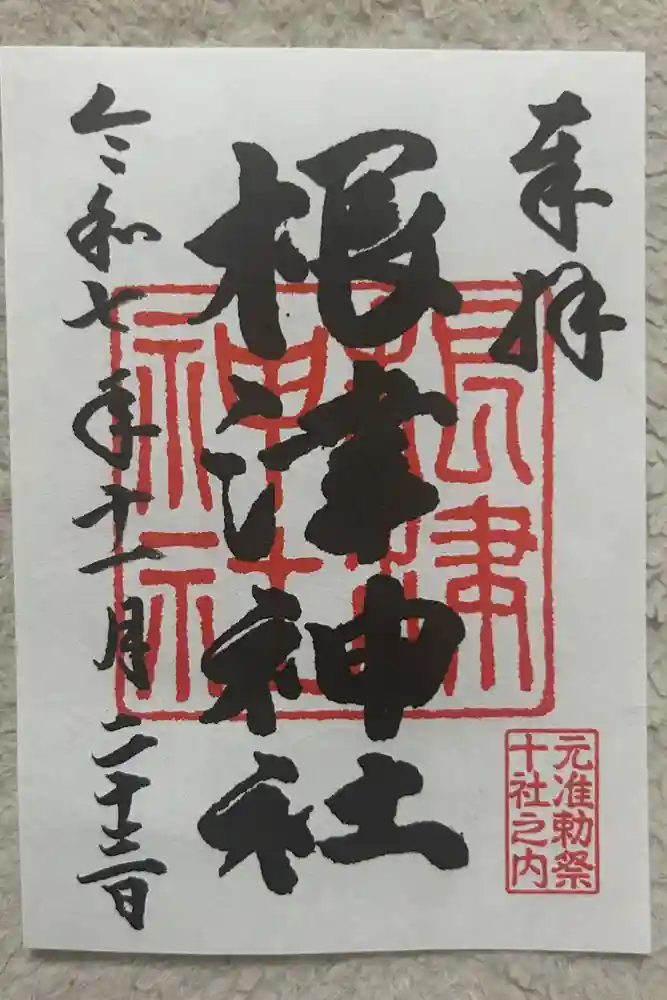 奉拝
根津神社
根津神社
元准勅祭
十社之内
令和七年十一月二十三日